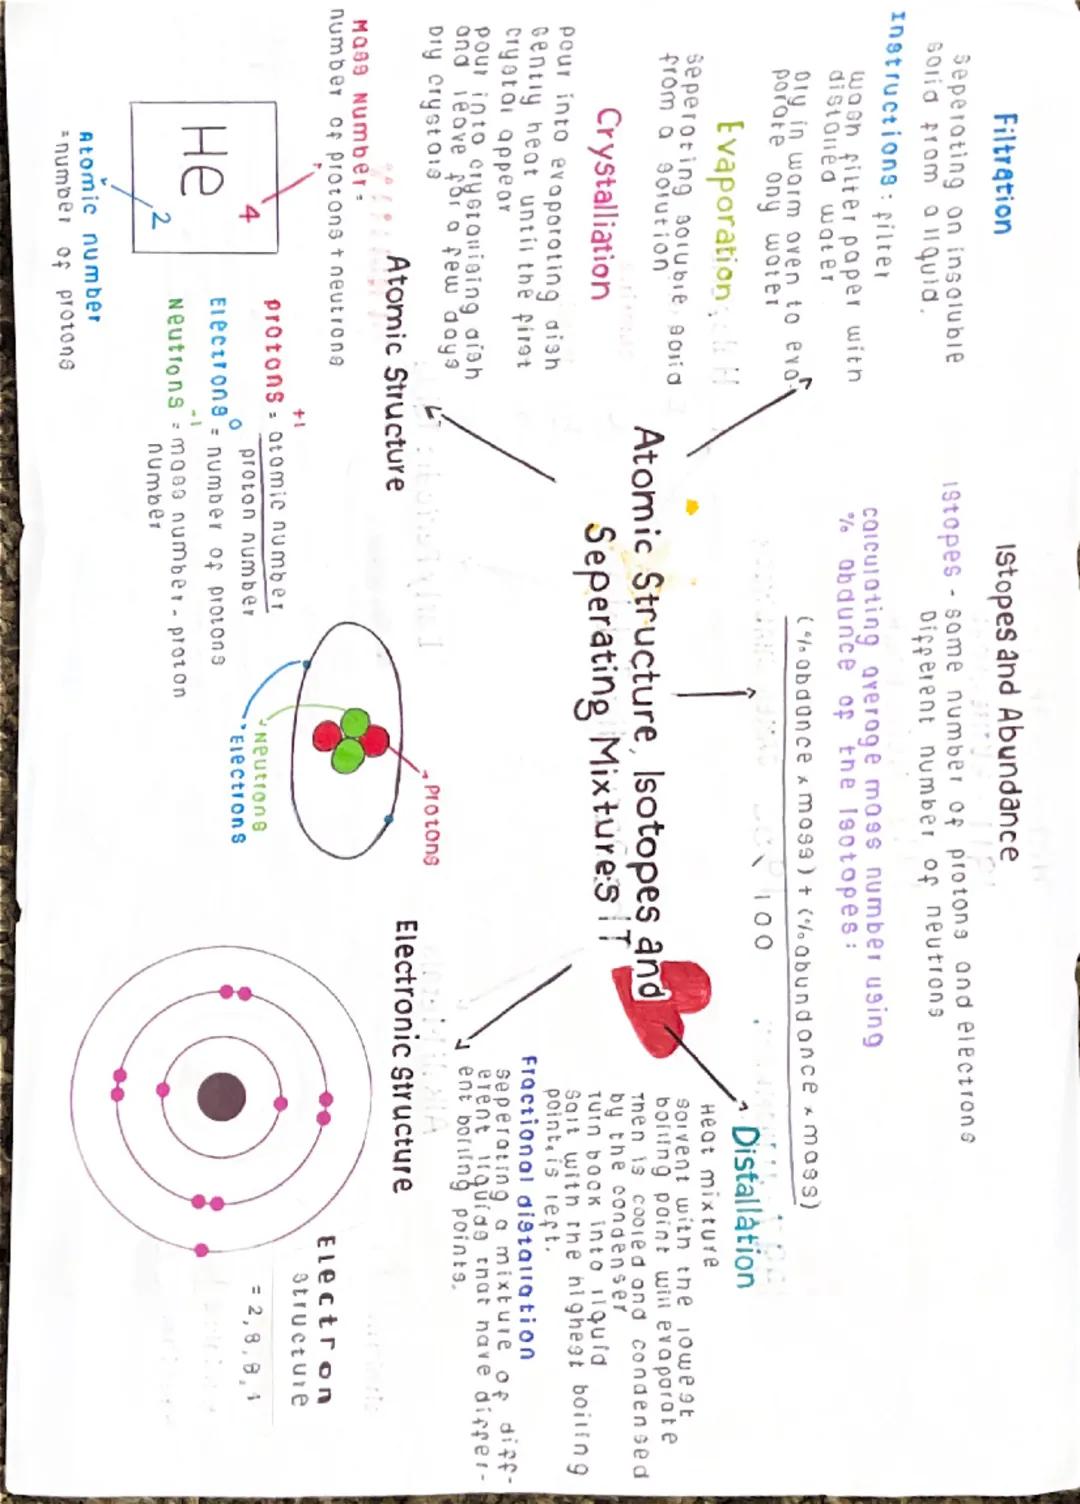 Filtration
Seperating an insoluble
solid from a liquid.
Instructions: filter
wash filter paper with
distalled water
Dry in warm oven to eva-
porate any water
Evaporation
Seperating soluble, solid
from a solution
Crystalliation
Pour into evaporating dish
Gently heat until the first
crystal appear
Pour into crystallising dish
and leave for a few days
Dry crystals
Istopes and Abundance
Istopes - same number of protons and electrons
Different number of neutrons
calculating average mass number using
% abdunce of the Isotopes:
(% abdance x mass) + (% abundance x mass)
100
Atomic Structure, Isotopes and
Seperating Mixtures 1T
Distallation
Heat mixture
Solvent with the lowest
boiling point will evaparate
Then is cooled and condensed
by the condenser
Turn back into liquid
Salt with the highest boiling
point is left.
Fractional distallation
Seperating a mixture of diff-
erent liquids that have differ-
ent boiling points.
Atomic Structure
Mass Number =
number of protons + neutrons
4
He
2
Atomic number
= number of protons
+1
Protons = atomic number
proton number
0
Electrons = number of protons
-1
Neutrons = mass number - proton
number
Protons
Neutrons
Electrons
Electronic Structure
Electron
Structure
= 2,8,8,1